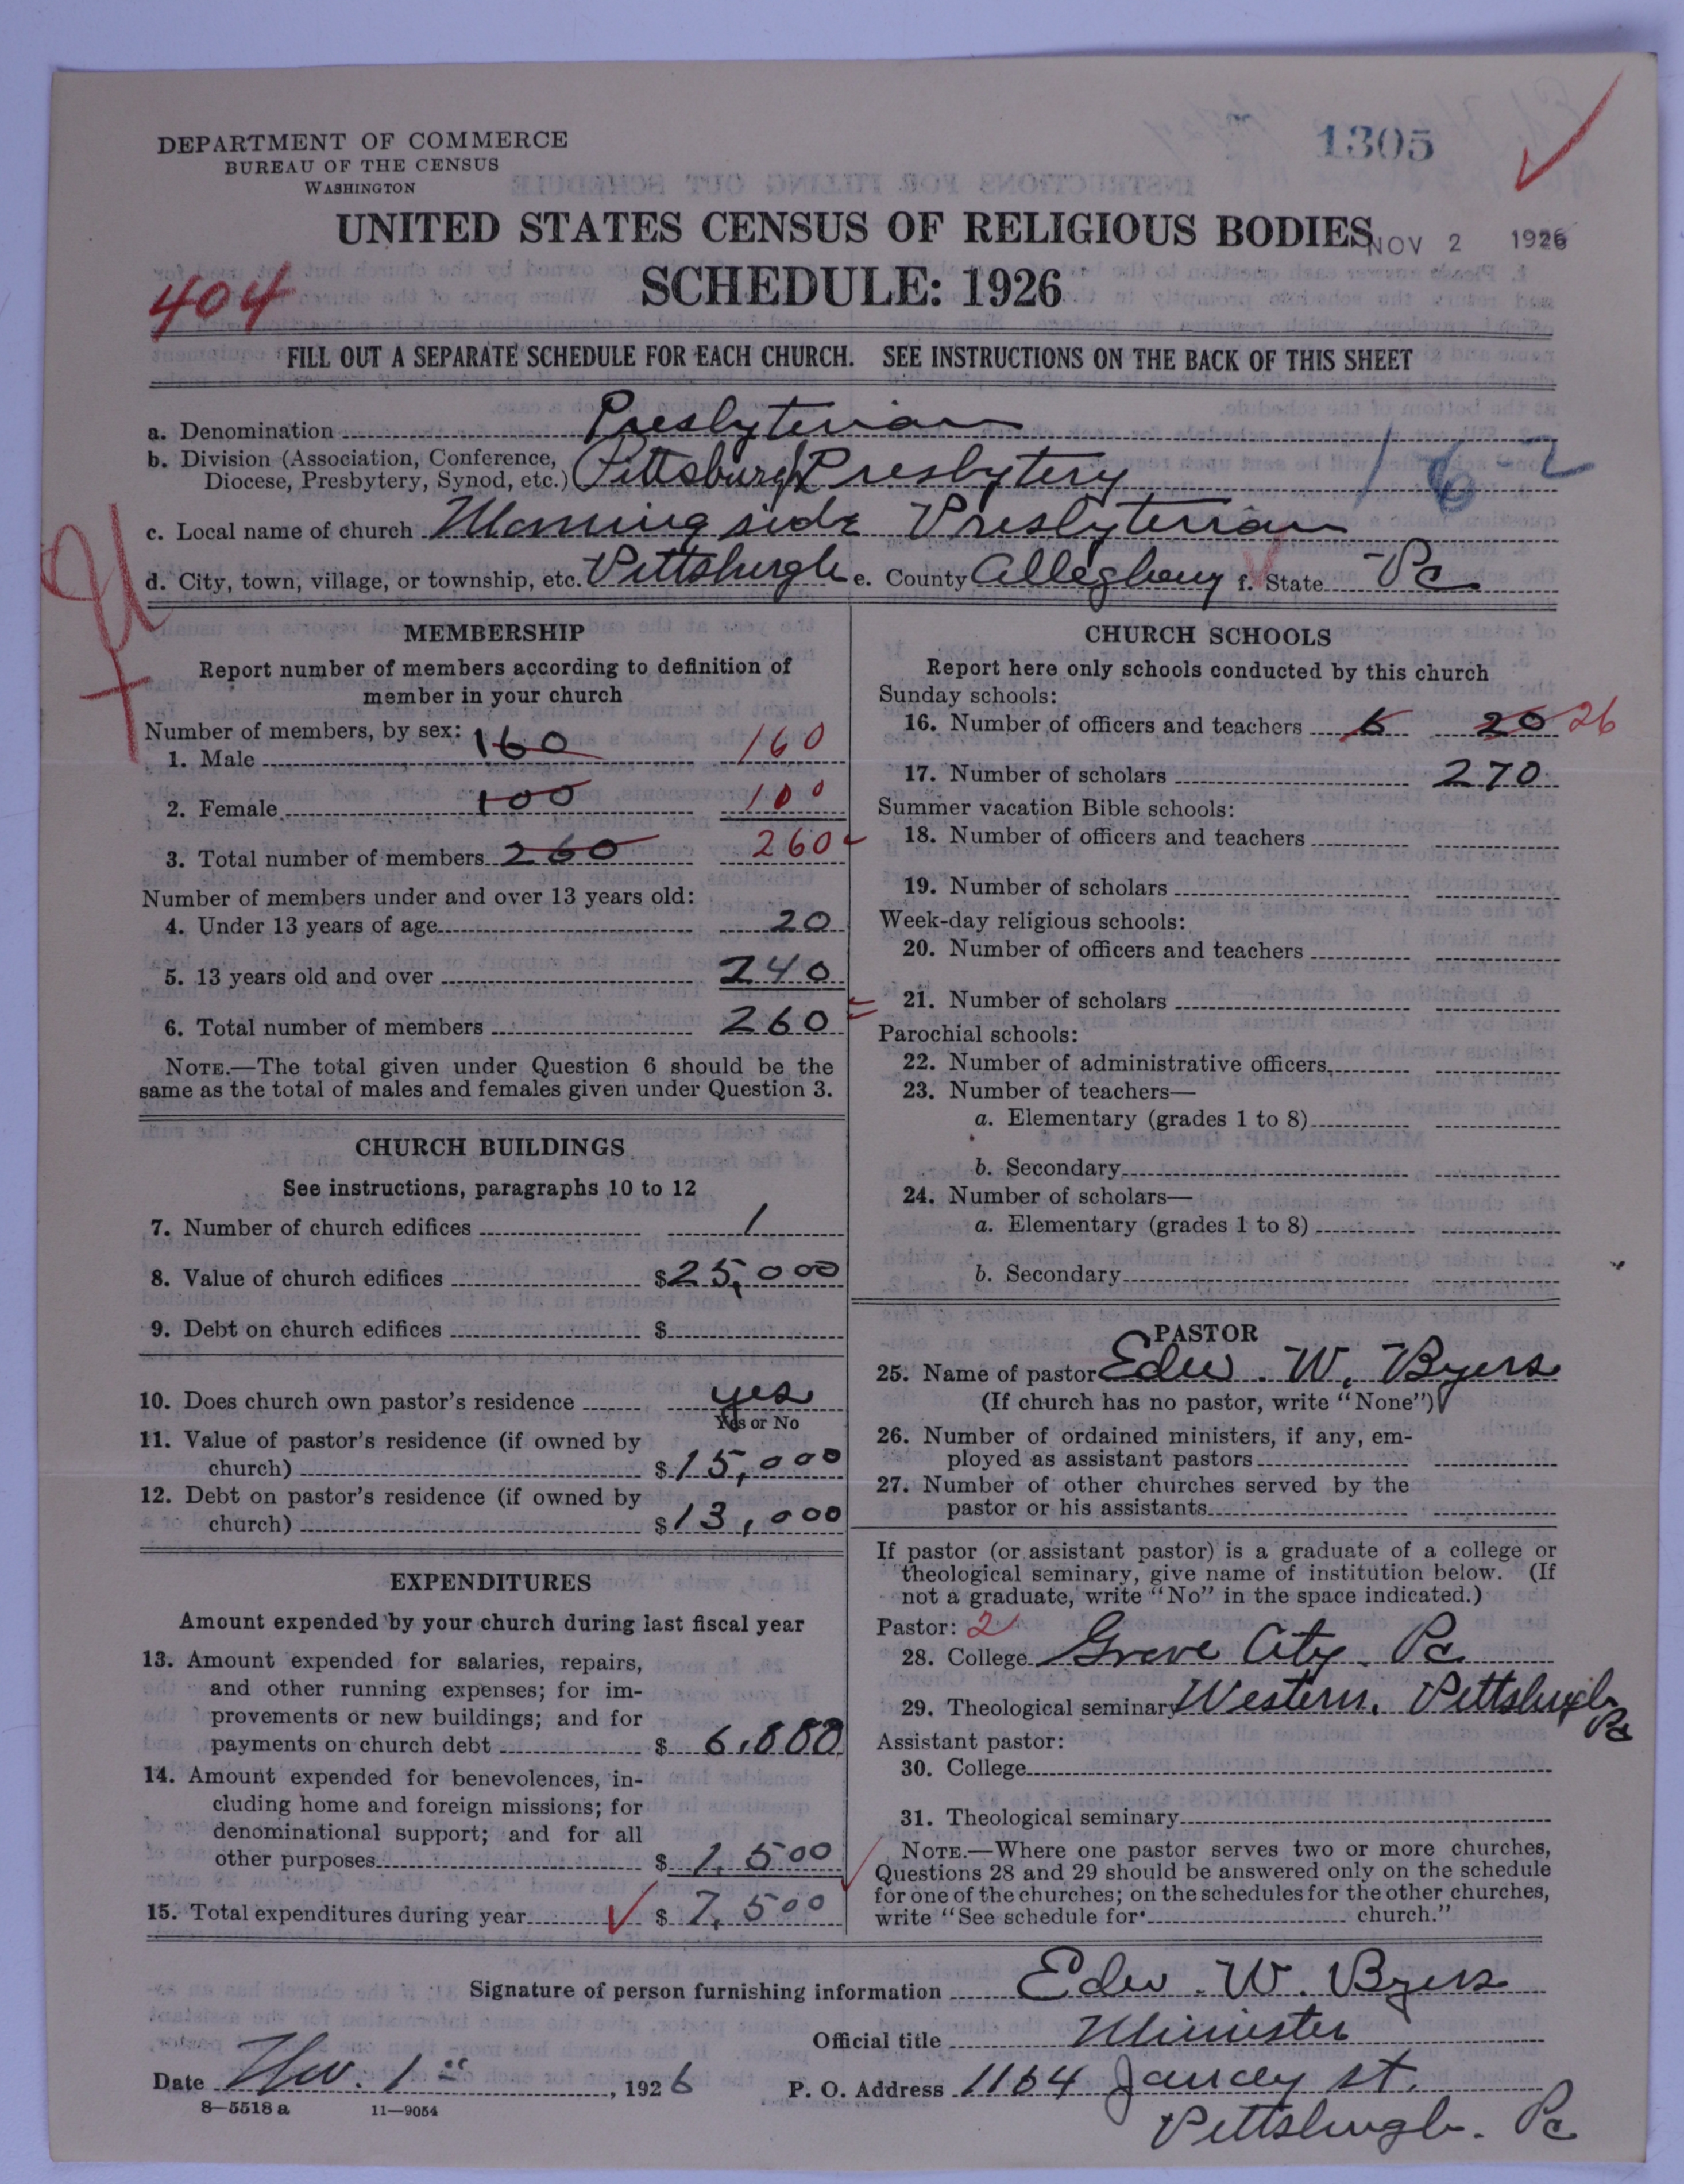 DEPARTMENT OF COMMERCE
BUREAU OF THE CENSUS
WASHINGTON
1305
UNITED STATES CENSUS OF RELIGIOUS BODIES
NOV 2 1926
SCHEDULE: 1926
404
FILL OUT A SEPARATE SCHEDULE FOR EACH CHURCH. SEE INSTRUCTIONS ON THE BACK OF THIS SHEET
a. Denomination Presbyterian
b. Division (Association, Conference, Diocese, Presbytery, Synod, etc.) Pittsburgh Presbytery 16-2
c. Local name of church Morningside Presbyterian
d. City, town, village, or township, etc. Pittsburgh e. County Allegheny f. State Pa
MEMBERSHIP
Report number of members according to definition of
member in your church
Number of members, by sex:
1. Male 160 160
2. Female 100 100
3. Total number of members 260 260
Number of members under and over 13 years old:
4. Under 13 years of age 20
5. 13 years old and over 240
6. Total number of members 260
NOTE.—The total given under Question 6 should be the
same as the total of males and females given under Question 3.
CHURCH BUILDINGS
See instructions, paragraphs 10 to 12
7. Number of church edifices 1
8. Value of church edifices $25,000
9. Debt on church edifices $
10. Does church own pastor's residence yes
Yes or No
11. Value of pastor's residence (if owned by
church) $15,000
12. Debt on pastor's residence (if owned by
church) $13,000
EXPENDITURES
Amount expended by your church during last fiscal year
13. Amount expended for salaries, repairs,
and other running expenses; for im-
provements or new buildings; and for
payments on church debt $ 6,000
14. Amount expended for benevolences, in-
cluding home and foreign missions; for
denominational support; and for all
other purposes $ 1,500
15. Total expenditures during year $ 7,500
CHURCH SCHOOLS
Report here only schools conducted by this church
Sunday schools:
16. Number of officers and teachers 6 20 26
17. Number of scholars 270
Summer vacation Bible schools:
18. Number of officers and teachers
19. Number of scholars
Week-day religious schools:
20. Number of officers and teachers
21. Number of scholars
Parochial schools:
22. Number of administrative officers
23. Number of teachers—
a. Elementary (grades 1 to 8)
b. Secondary
24. Number of scholars—
a. Elementary (grades 1 to 8)
b. Secondary
PASTOR
25. Name of pastor Edw. W. Byers
(If church has no pastor, write "None")
26. Number of ordained ministers, if any, em-
ployed as assistant pastors
27. Number of other churches served by the
pastor or his assistants
If pastor (or assistant pastor) is a graduate of a college or
theological seminary, give name of institution below. (If
not a graduate, write "No" in the space indicated.)
Pastor: 2
28. College Grove City Pa
29. Theological seminary Western, Pittsburgh Pa
Assistant pastor:
30. College
31. Theological seminary
NOTE.—Where one pastor serves two or more churches,
Questions 28 and 29 should be answered only on the schedule
for one of the churches; on the schedules for the other churches,
write "See schedule for church."
Signature of person furnishing information Edw. W. Byers
Official title Minister
Date Nov. 1, 1926 P. O. Address 1164 Jancey St.
Pittsburgh. Pa
8—5518 a 11—9054